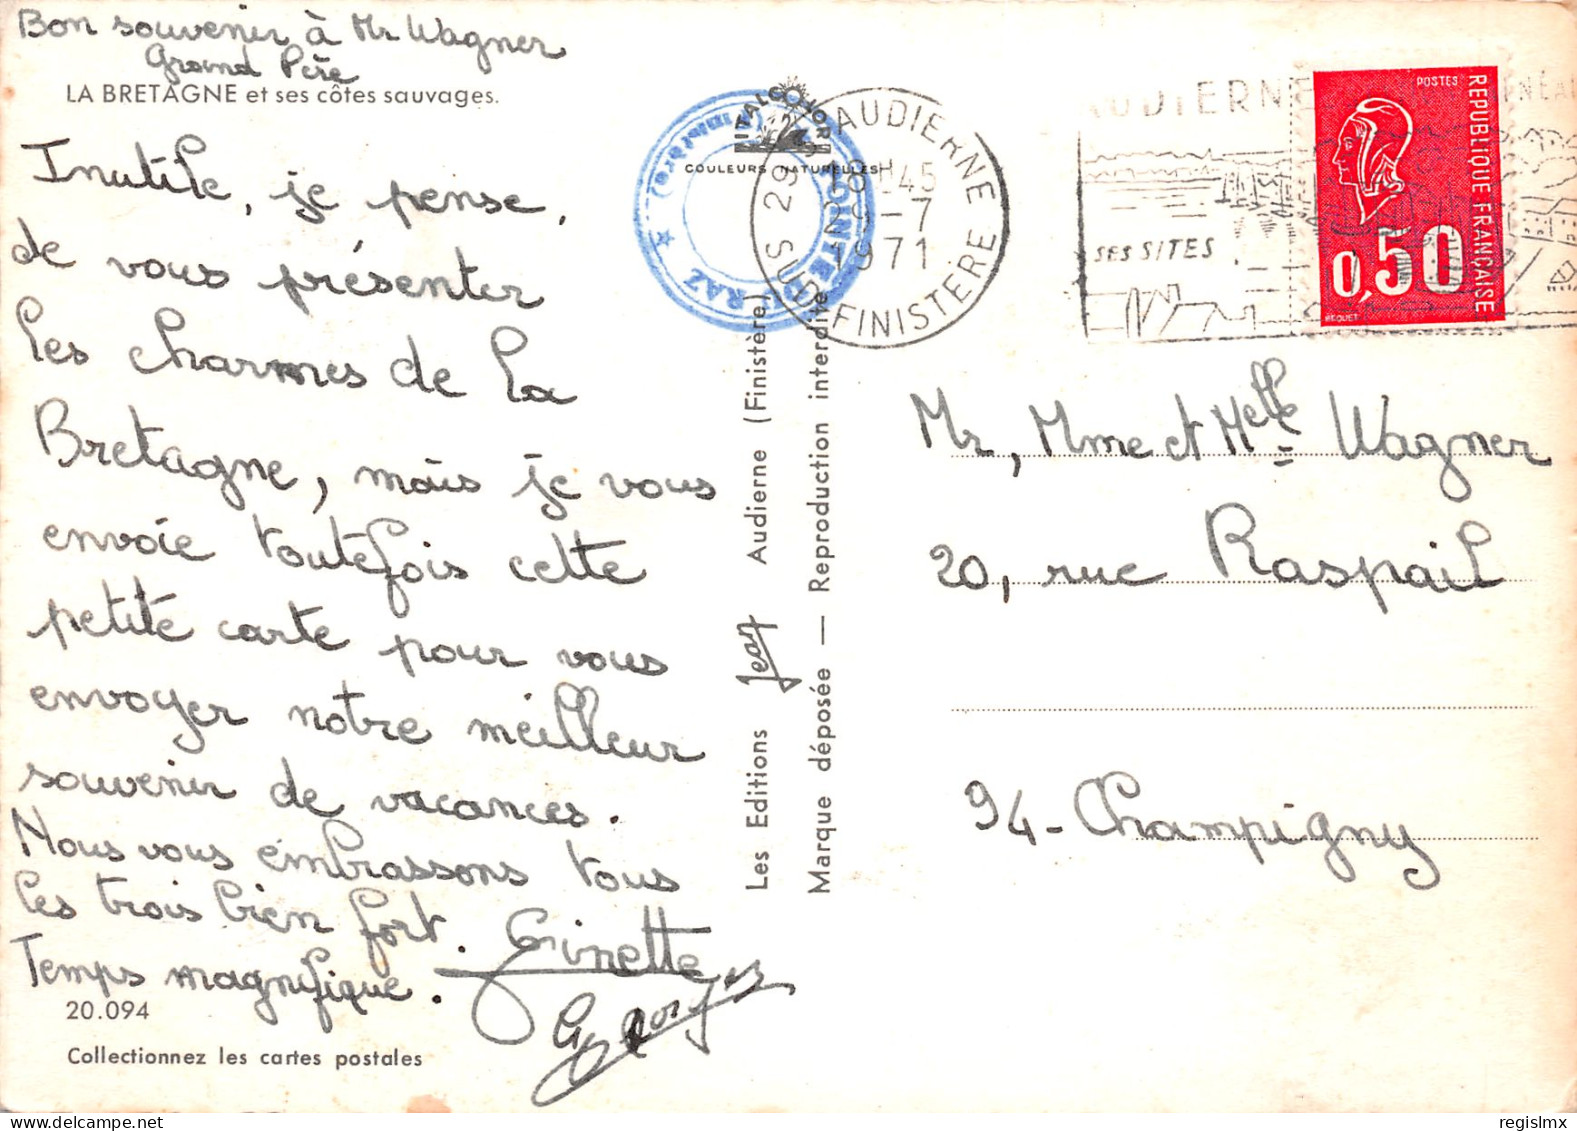 Bon souvenir à Mr Wagner
Grand Père
LA BRETAGNE et ses côtes sauvages.
Inutile, je pense,
de vous présenter
les charmes de la
Bretagne, mais je vous
envoie toutefois cette
petite carte pour vous
envoyer notre meilleur
souvenir de vacances.
Nous vous embrassons tous
les trois bien fort.
Temps magnifique.
Ginette
Georges
20.094
Collectionnez les cartes postales
ITALCOLOR
COULEURS NATURELLES
POINTE DU RAZ
AUDIERNE
29 S
45
-7
1971
SUD FINISTÈRE
Les Editions Jean Audierne (Finistère)
Marque déposée — Reproduction interdite
AUDIERNE
SES SITES
POSTES
REPUBLIQUE FRANÇAISE
0,50
BEQUET
Mr, Mme et Melle Wagner
20, rue Raspail
94-Champigny
regislmx